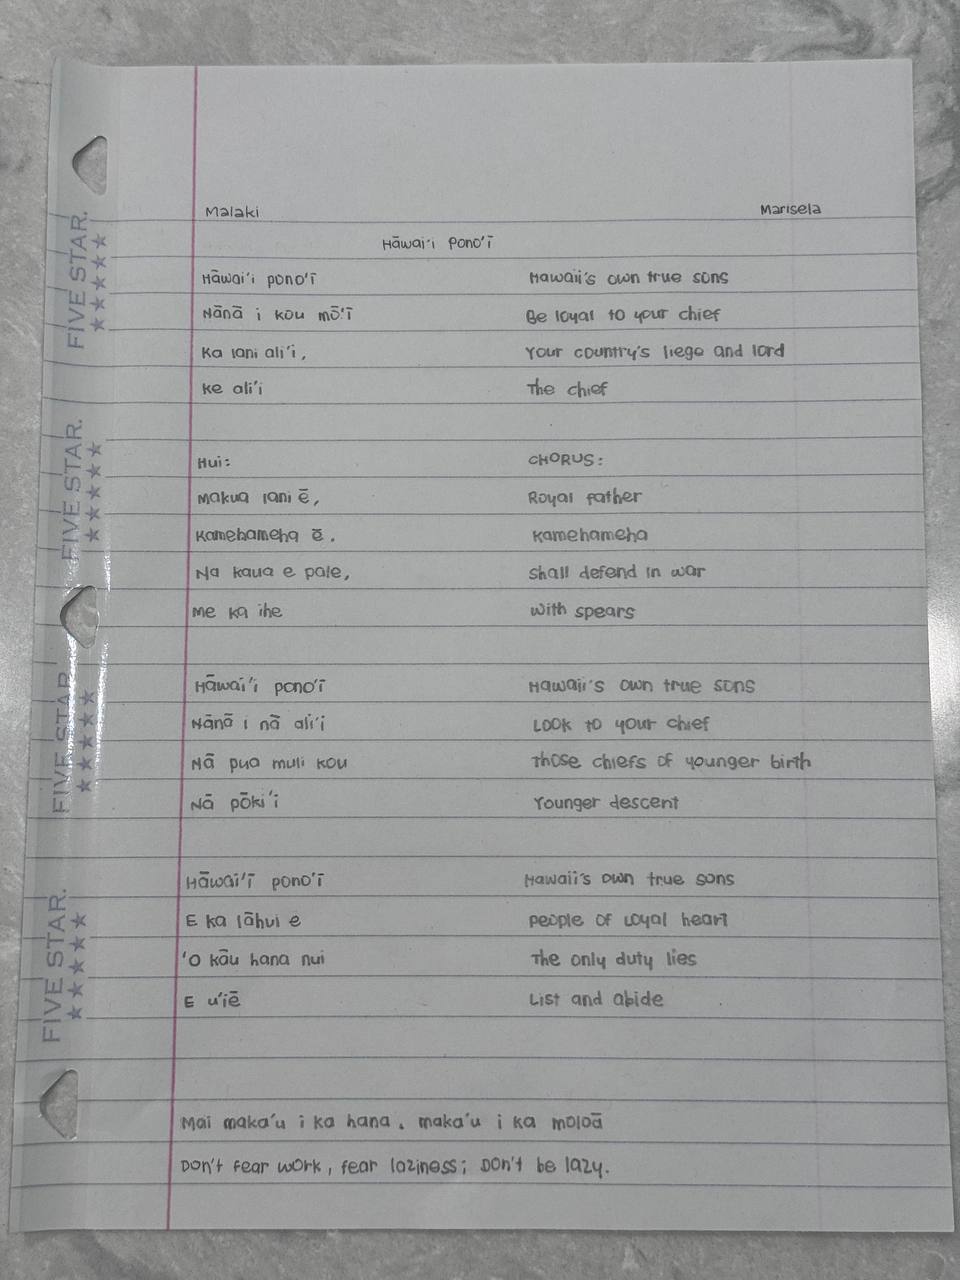 Malaki Marisela
Hāwai'i Pono'ī
Hāwai'i pono'ī Hawaii's own true sons
Nānā i kou mō'ī Be loyal to your chief
Ka lani ali'i, Your country's liege and lord
Ke ali'i The chief
Hui: CHORUS:
Makua lani ē, Royal father
Kamehameha ē. Kamehameha
Na kaua e pale, Shall defend in war
Me ka ihe With spears
Hāwai'i pono'ī Hawaii's own true sons
Nānā i nā ali'i Look to your chief
Nā pua muli kou Those chiefs of younger birth
Nā pōki'i Younger descent
Hāwai'ī pono'ī Hawaii's own true sons
E ka lāhui e People of loyal heart
'O kāu hana nui The only duty lies
E u'iē List and abide
Mai maka'u i ka hana, maka'u i ka moloā
Don't fear work, fear laziness; Don't be lazy.
FIVE STAR.
FIVE STAR.
FIVE STAR
FIVE STAR.